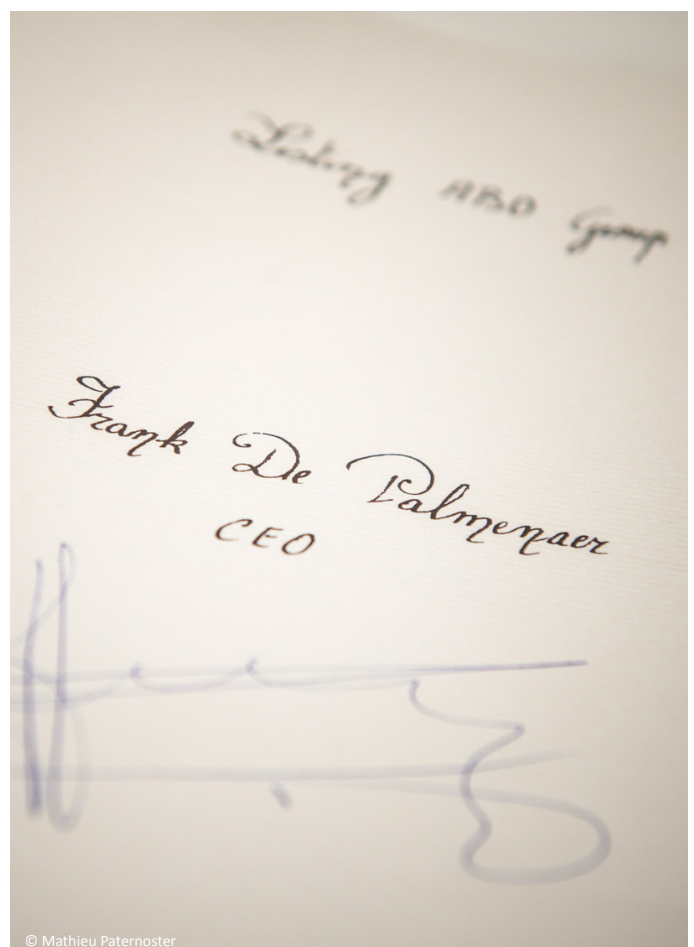 Listing ABO Group
Frank De Palmenaer
CEO
© Mathieu Paternoster